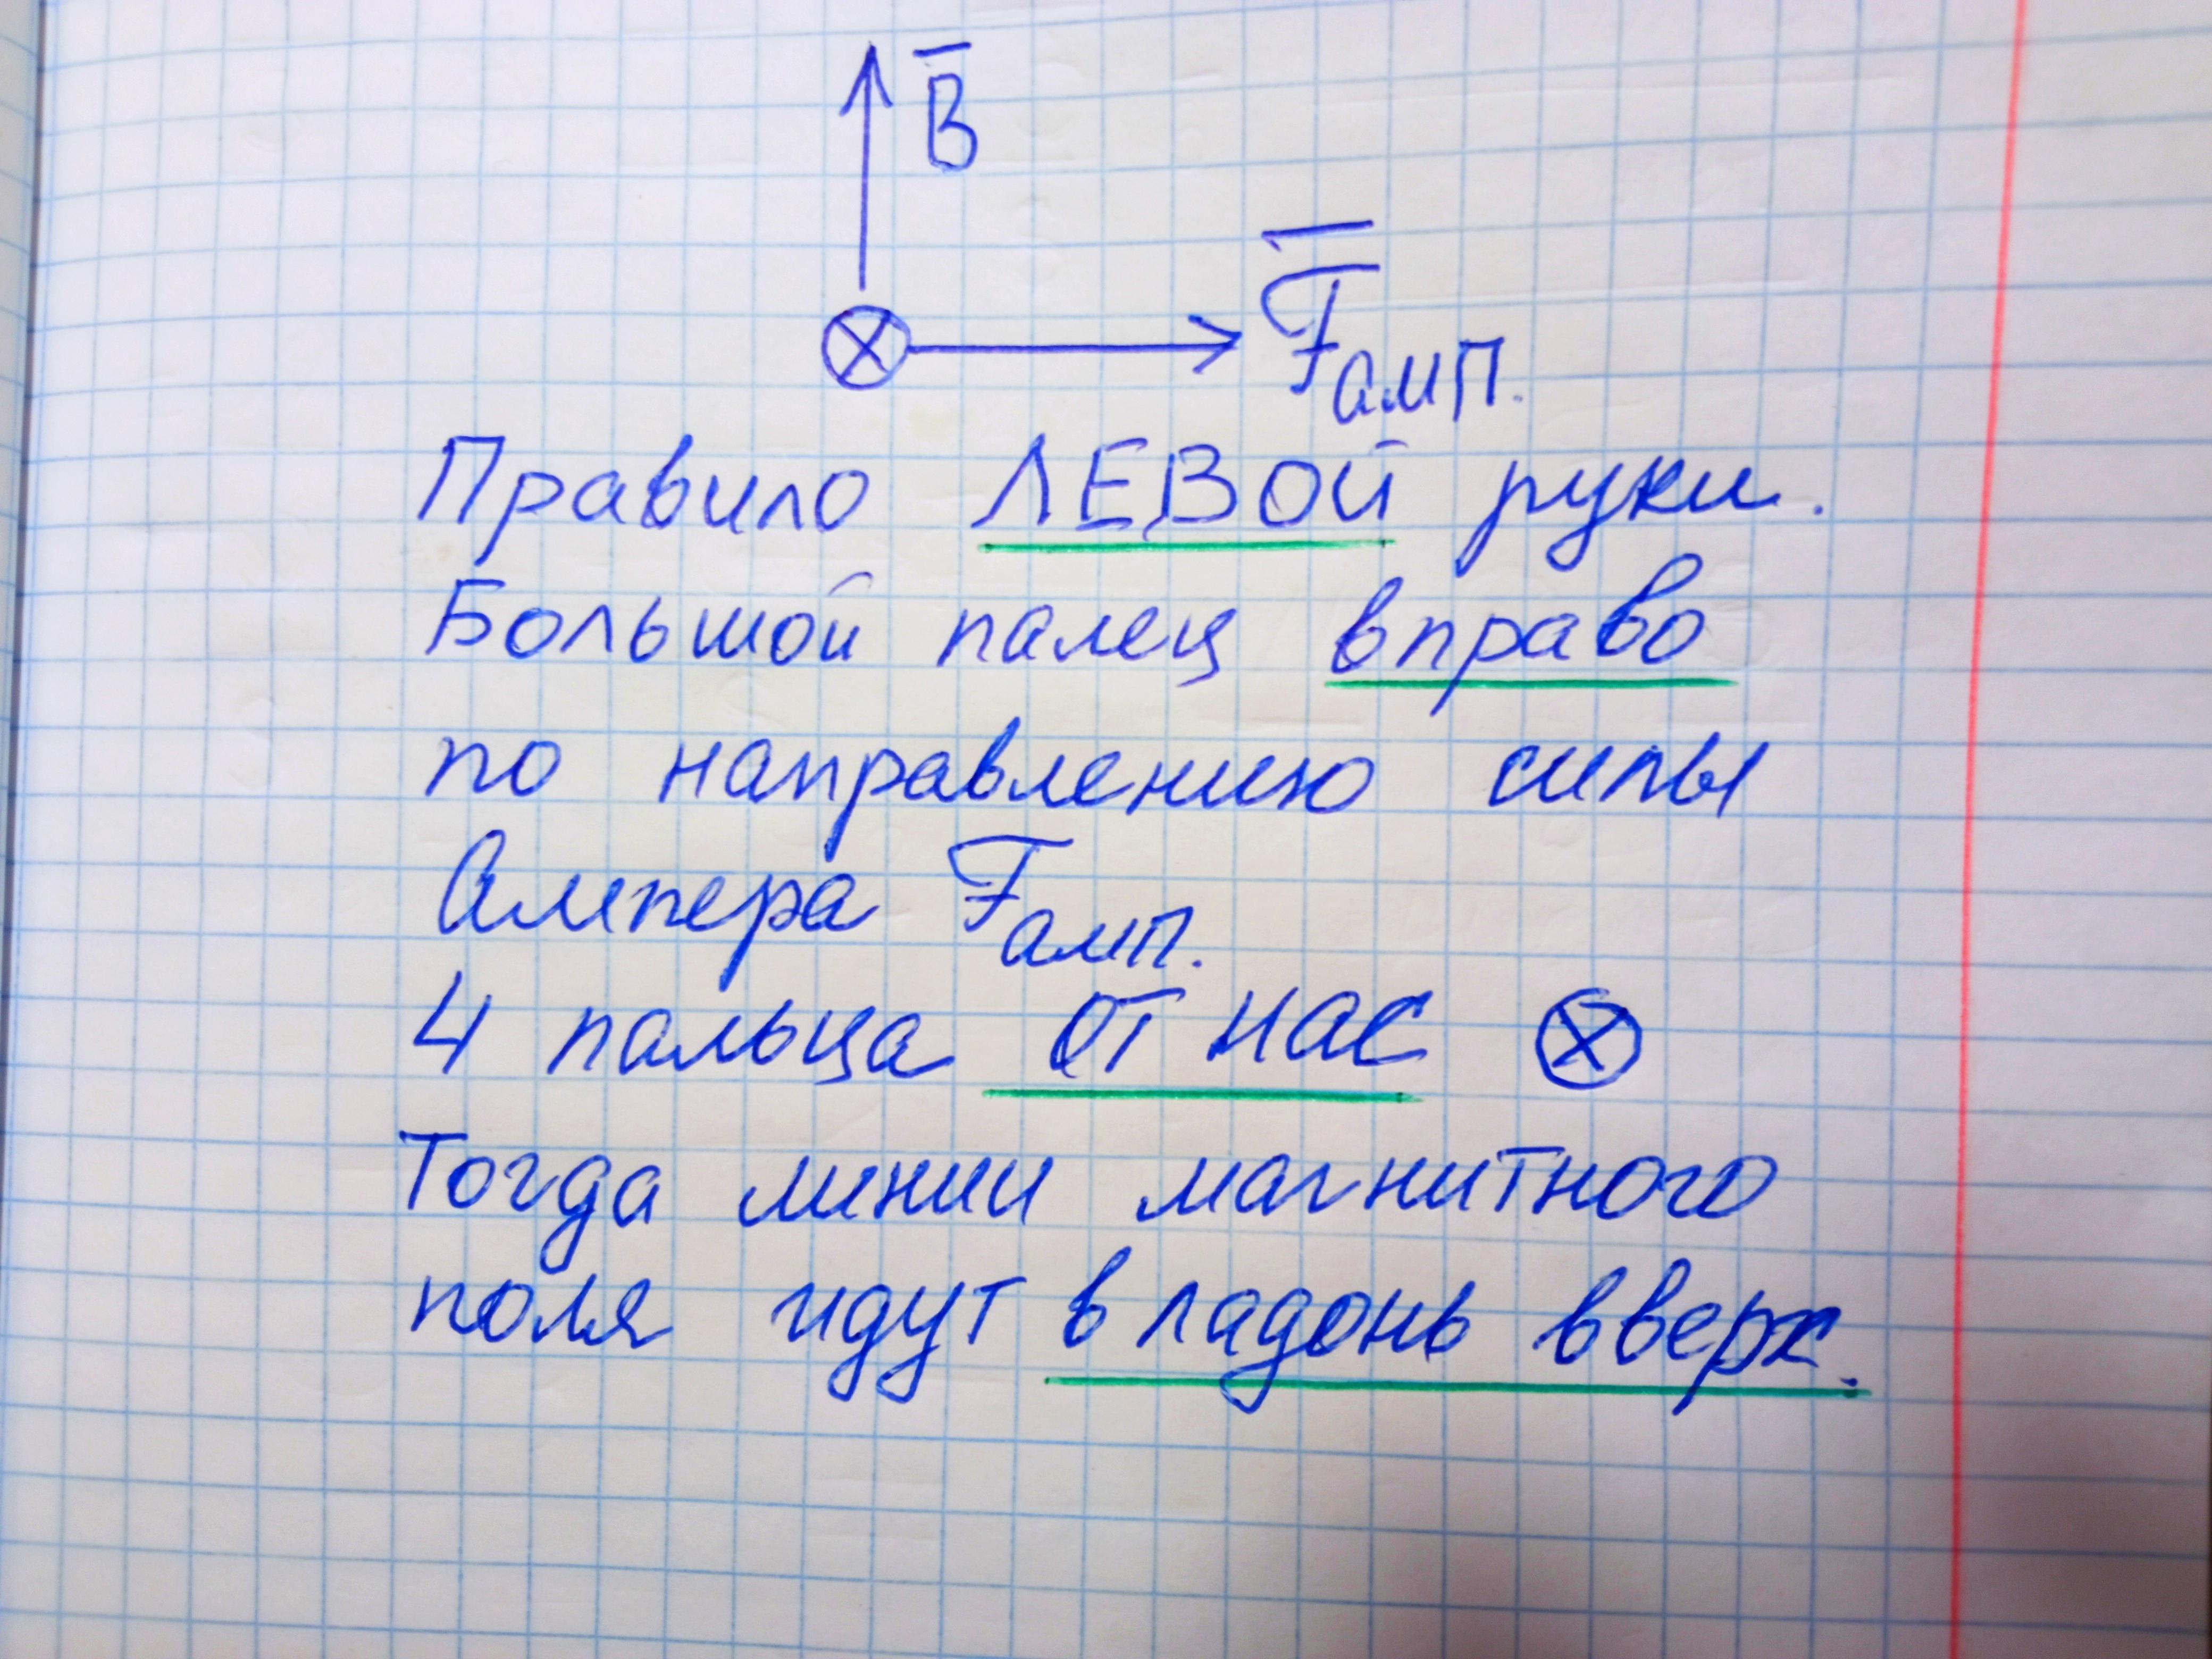 B̅
F̅амп.
Правило ЛЕВОЙ руки.
Большой палец вправо
по направлению силы
Ампера Fамп.
4 пальца от нас ⊗
Тогда линии магнитного
поля идут в ладонь вверх.